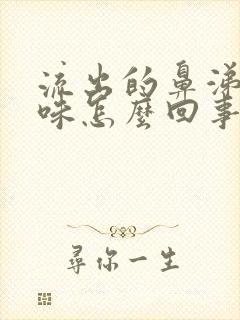 流出的鼻涕
味怎麼回事
尋你一生